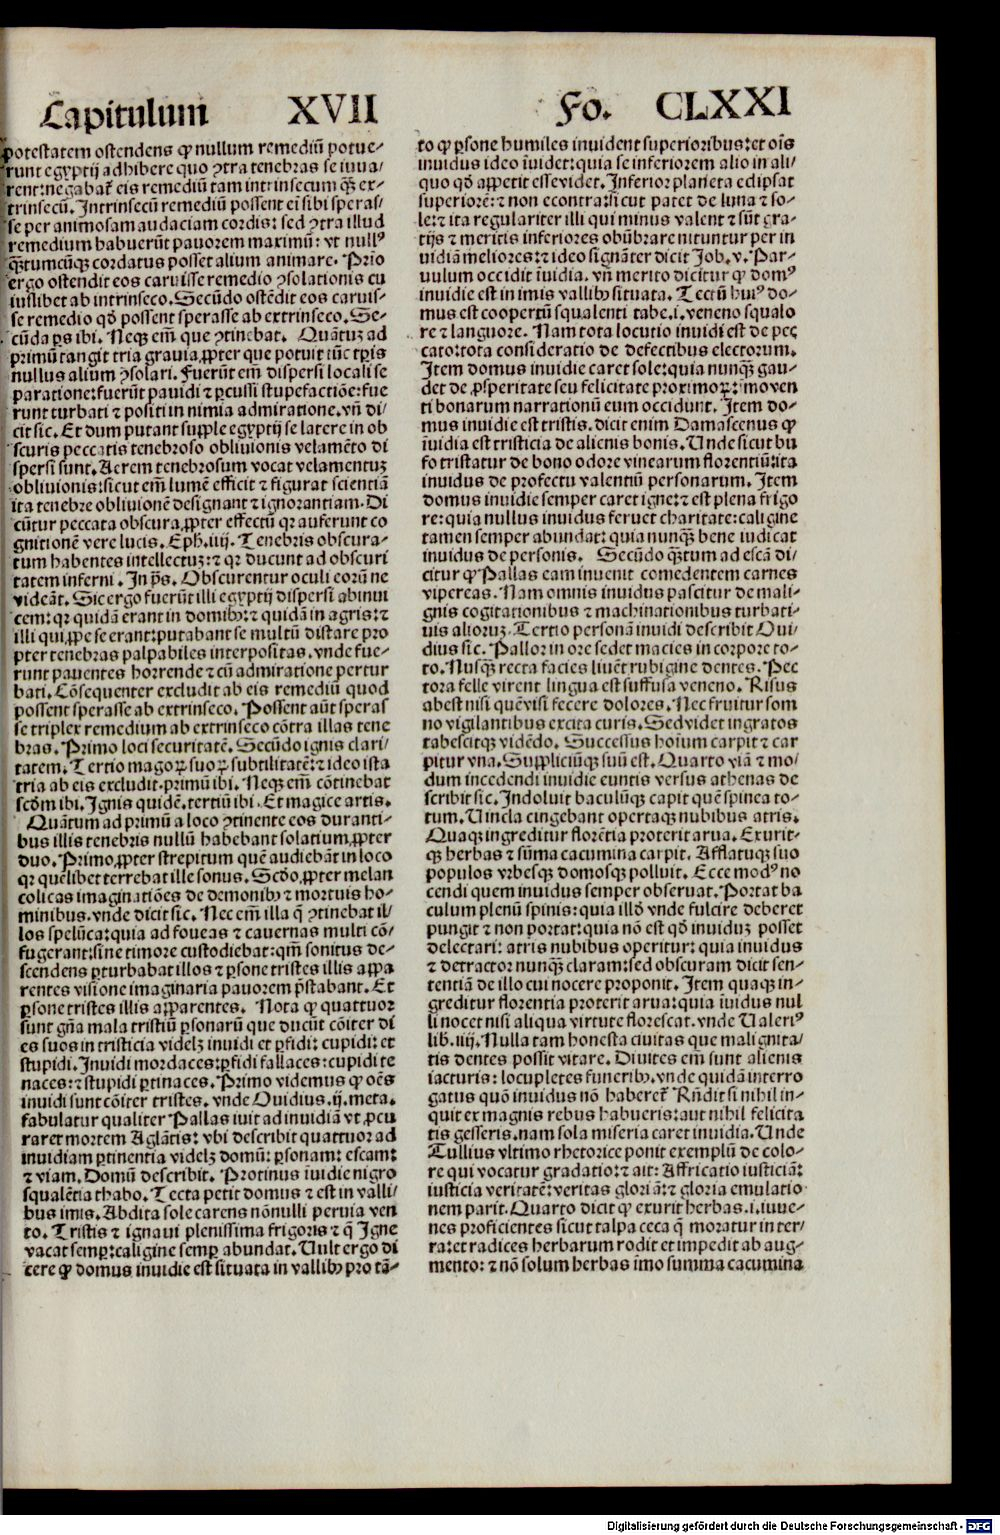 Capitulum XVII Fo. CLXXI
potestatem ostendens ꝙ nullum remediũ potue⸗
runt egyptij adhibere quo ꝯtra tenebras se iuua⸗
rent: negabat̃ eis remediũ tam intrinsecum qꝫ̃ ex⸗
trinsecũ. Intrinsecũ remediũ possent eĩ sibi speras⸗
se per animosam audaciam cordis: sed ꝯtra illud
remedium habuerũt pauorem maximũ: vt nullꝰ
qꝫ̃tumcũqꝫ cordatus posset alium animare. Primo
ergo ostendit eos caruisse remedio ꝯsolationis cu
iuslibet ab intrinseco. Secũdo ostẽdit eos caruis⸗
se remedio qđ possent sperasse ab extrinseco. Se⸗
cũda ps ibi. Neqꝫ em̃ que ꝯtinebat. Quãtuꝫ ad
primũ tangit tria grauia, ꝓpter que potuit tũc tp̃ris
nullus alium ꝯsolari. Fuerũt em̃ dispersi locali se
paratione: fuerũt pauidi ⁊ ꝑcussi stupefactiõe: fue
runt turbati ⁊ positi in nimia admiratione. vñ di⸗
cit sic. Et dum putant supple egyptij se latere in ob
scuris peccatis tenebroso obliuionis velamẽto di
spersi sunt. Aerem tenebrosum vocat velamentuꝫ
obliuionis: sicut em̃ lumẽ efficit ⁊ figurat scientiã
ita tenebre obliuionẽ designant ⁊ ignorantiam. Di
cũtur peccata obscura, ꝓpter effectũ qꝛ auferunt co
gnitionẽ vere lucis. Eph. iiij. Tenebris obscura⸗
tum habentes intellectuꝫ: ⁊ qꝛ ducunt ad obscuri
tatem inferni. In p̃s. Obscurentur oculi eorũ ne
videãt. Sic ergo fuerũt illi egyptij dispersi abinui
cem: qꝛ quidã erant in domibꝰ: ⁊ quidã in agris: ⁊
illi qui, ꝓpe se erant: putabant se multũ distare pro
pter tenebras palpabiles interpositas. vnde fue⸗
runt pauentes horrende ⁊ cũ admiratione pertur
bati. Cõsequenter excludit ab eis remediũ quod
possent sperasse ab extrinseco. Possent aũt speras
se triplex remedium ab extrinseco cõtra illas tene
bras. Primo loci securitatẽ. Secũdo ignis clari⸗
tatem. Tertio magoꝝ suoꝝ subtilitatẽ: ⁊ ideo ista
tria ab eis excludit. primũ ibi. Neqꝫ em̃ cõtinebat
scđm ibi. Ignis quidẽ. tertiũ ibi. Et magice artis.
Quãtum ad primũ a loco ꝯtinente eos duranti⸗
bus illis tenebris nullũ habebant solatium, ꝓpter
duo. Primo, ꝓpter strepitum quẽ audiebãt in loco
qꝛ quẽlibet terrebat ille sonus. Scđo, ꝓpter melan
colicas imaginatiões de demonibꝰ ⁊ mortuis ho⸗
minibus. vnde dicit sic. Nec em̃ illa q̃ ꝯtinebat il⸗
los spelũca: quia ad foueas ⁊ cauernas multi cõ⸗
fugerant: sine timore custodiebat: qm̃ sonitus de⸗
scendens ꝑturbabat illos ⁊ ꝑsone tristes illis appa
rentes visione imaginaria pauorem p̃stabant. Et
ꝑsone tristes illis apparentes. Nota ꝙ quattuor
sunt gñа mala tristiũ ꝑsonarũ que ducũt cõiter di
es suos in tristicia videlꝫ inuidi et ꝑfidi: cupidi: et
stupidi. Inuidi mordaces: ꝑfidi fallaces: cupidi te
naces: ⁊ stupidi ꝑtinaces. Primo videmus ꝙ oẽs
inuidi sunt cõiter tristes. vnde Ouidius. ij. meta.
fabulatur qualiter Pallas iuit ad inuidiã vt ꝓcu
raret mortem Aglãtis: vbi describit quattuor ad
inuidiam ꝑtinentia videlꝫ domũ: ꝑsonam: escam:
⁊ viam. Domũ describit. Protinus ĩuidie nigro
squalẽtia thabo. Tecta petit domus ⁊ est in valli⸗
bus imis. Abdita sole carens nõnulli peruia ven
to. Tristis ⁊ ignaui plenissima frigoris ⁊ q̃ Igne
vacat semꝑ: caligine semꝑ abundat. Vult ergo di
cere ꝙ domus inuidie est situata in vallibꝰ pro tã⸗
to ꝙ ꝑsone humiles inuident superioribus: et oĩs
inuidus ideo ĩuidet: quia se inferiorem alio in ali⸗
quo qđ appetit esse videt. Inferior planeta eclipsat
superiorẽ: ⁊ non econtra: sicut patet de luna ⁊ so⸗
le: ⁊ ita regulariter illi qui minus valent ⁊ sũt gra⸗
tijs ⁊ meritis inferiores obũbrare nituntur per in
uidiã meliores: ⁊ ideo signãter dicit Job. v. Par⸗
uulum occidit ĩuidia. vñ merito dicitur ꝙ domꝰ
inuidie est in imis vallibꝰ situata. Tectũ huiꝰ do⸗
mus est coopertũ squalenti tabe. i. veneno squalo
re ⁊ languore. Nam tota locutio inuidi est de pec
cato: tota consideratio de defectibus electorum.
Item domus inuidie caret sole: quia nunqꝫ̃ gau⸗
det de ꝓsperitate seu felicitate proximoꝝ: moven
ti bonarum narrationũ eum occidunt. Item do⸗
mus inuidie est tristis. dicit enim Damascenus ꝙ
ĩuidia est tristicia de alienis bonis. Unde sicut bu
fo tristatur de bono odore vinearum florentiũ: ita
inuidus de profectu valentiũ personarum. Item
domus inuidie semper caret igne: ⁊ est plena frigo
re: quia nullus inuidus feruet charitate: caligine
tamen semper abundat: quia nunqꝫ̃ bene iudicat
inuidus de personis. Secũdo qꝫ̃tum ad escã di⸗
citur ꝙ Pallas eam inuenit comedentem carnes
vipereas. Nam omnis inuidus pascitur de mali⸗
gnis cogitationibus ⁊ machinationibus turbati⸗
uis alioruꝫ. Tertio personã inuidi describit Oui⸗
dius sic. Pallor in ore sedet macies in corpore to⸗
to. Nusqꝫ̃ recta facies liuẽt rubigine dentes. Pec
tora felle virent lingua est suffusa veneno. Risus
abest nisi quẽ visi fecere dolores. Nec fruitur som
no vigilantibus excita curis. Sed videt ingratos
tabescitqꝫ vidẽdo. Successus hoĩum carpit ⁊ car
pitur vna. Suppliciũqꝫ suũ est. Quarto viã ⁊ mo⸗
dum incedendi inuidie euntis versus athenas de
scribit sic. Indoluit baculũqꝫ capit quẽ spinea to⸗
tum. Uincla cingebant opertaqꝫ nubibus atris.
Quaqꝫ ingreditur florẽtia proterit arua. Exurit⸗
qꝫ herbas ⁊ sũma cacumina carpit. Afflatuqꝫ suo
populos vrbesqꝫ domosqꝫ polluit. Ecce modꝰ no
cendi quem inuidus semper obseruat. Portat ba
culum plenũ spinis: quia illđ vnde fulcire deberet
pungit ⁊ non portat: quia nõ est qđ inuiduꝫ posset
delectari: atris nubibus operitur: quia inuidus
⁊ detractor nunqꝫ̃ claram: sed obscuram dicit sen⸗
tentiã de illo cui nocere proponit. Item quaqꝫ in⸗
greditur florentia proterit arua: quia ĩuidus nul
li nocet nisi aliqua virtute florescat. vnde Ualeriꝰ
lib. iiij. Nulla tam honesta ciuitas que malignita⸗
tis dentes possit vitare. Diuites em̃ sunt alienis
iacturis: locupletes funeribꝰ. vnde quidã interro
gatus quõ inuidus nõ haberet̃ Rñdit si nihil in⸗
quit ex magnis rebus habueris: aut nihil felicita
tis gesseris. nam sola miseria caret inuidia. Unde
Tullius vltimo rhetorice ponit exemplũ de colo⸗
re qui vocatur gradatio: ⁊ ait: Affricatio iusticiã:
iusticia veritatẽ: veritas gloriã: ⁊ gloria emulatio
nem parit. Quarto dicit ꝙ exurit herbas. i. iuue⸗
nes proficientes sicut talpa ceca q̃ moratur in ter⸗
ra: et radices herbarum rodit et impedit ab aug⸗
mento: ⁊ nõ solum herbas ĩmo summa cacumina
Digitalisierung gefördert durch die Deutsche Forschungsgemeinschaft - DFG